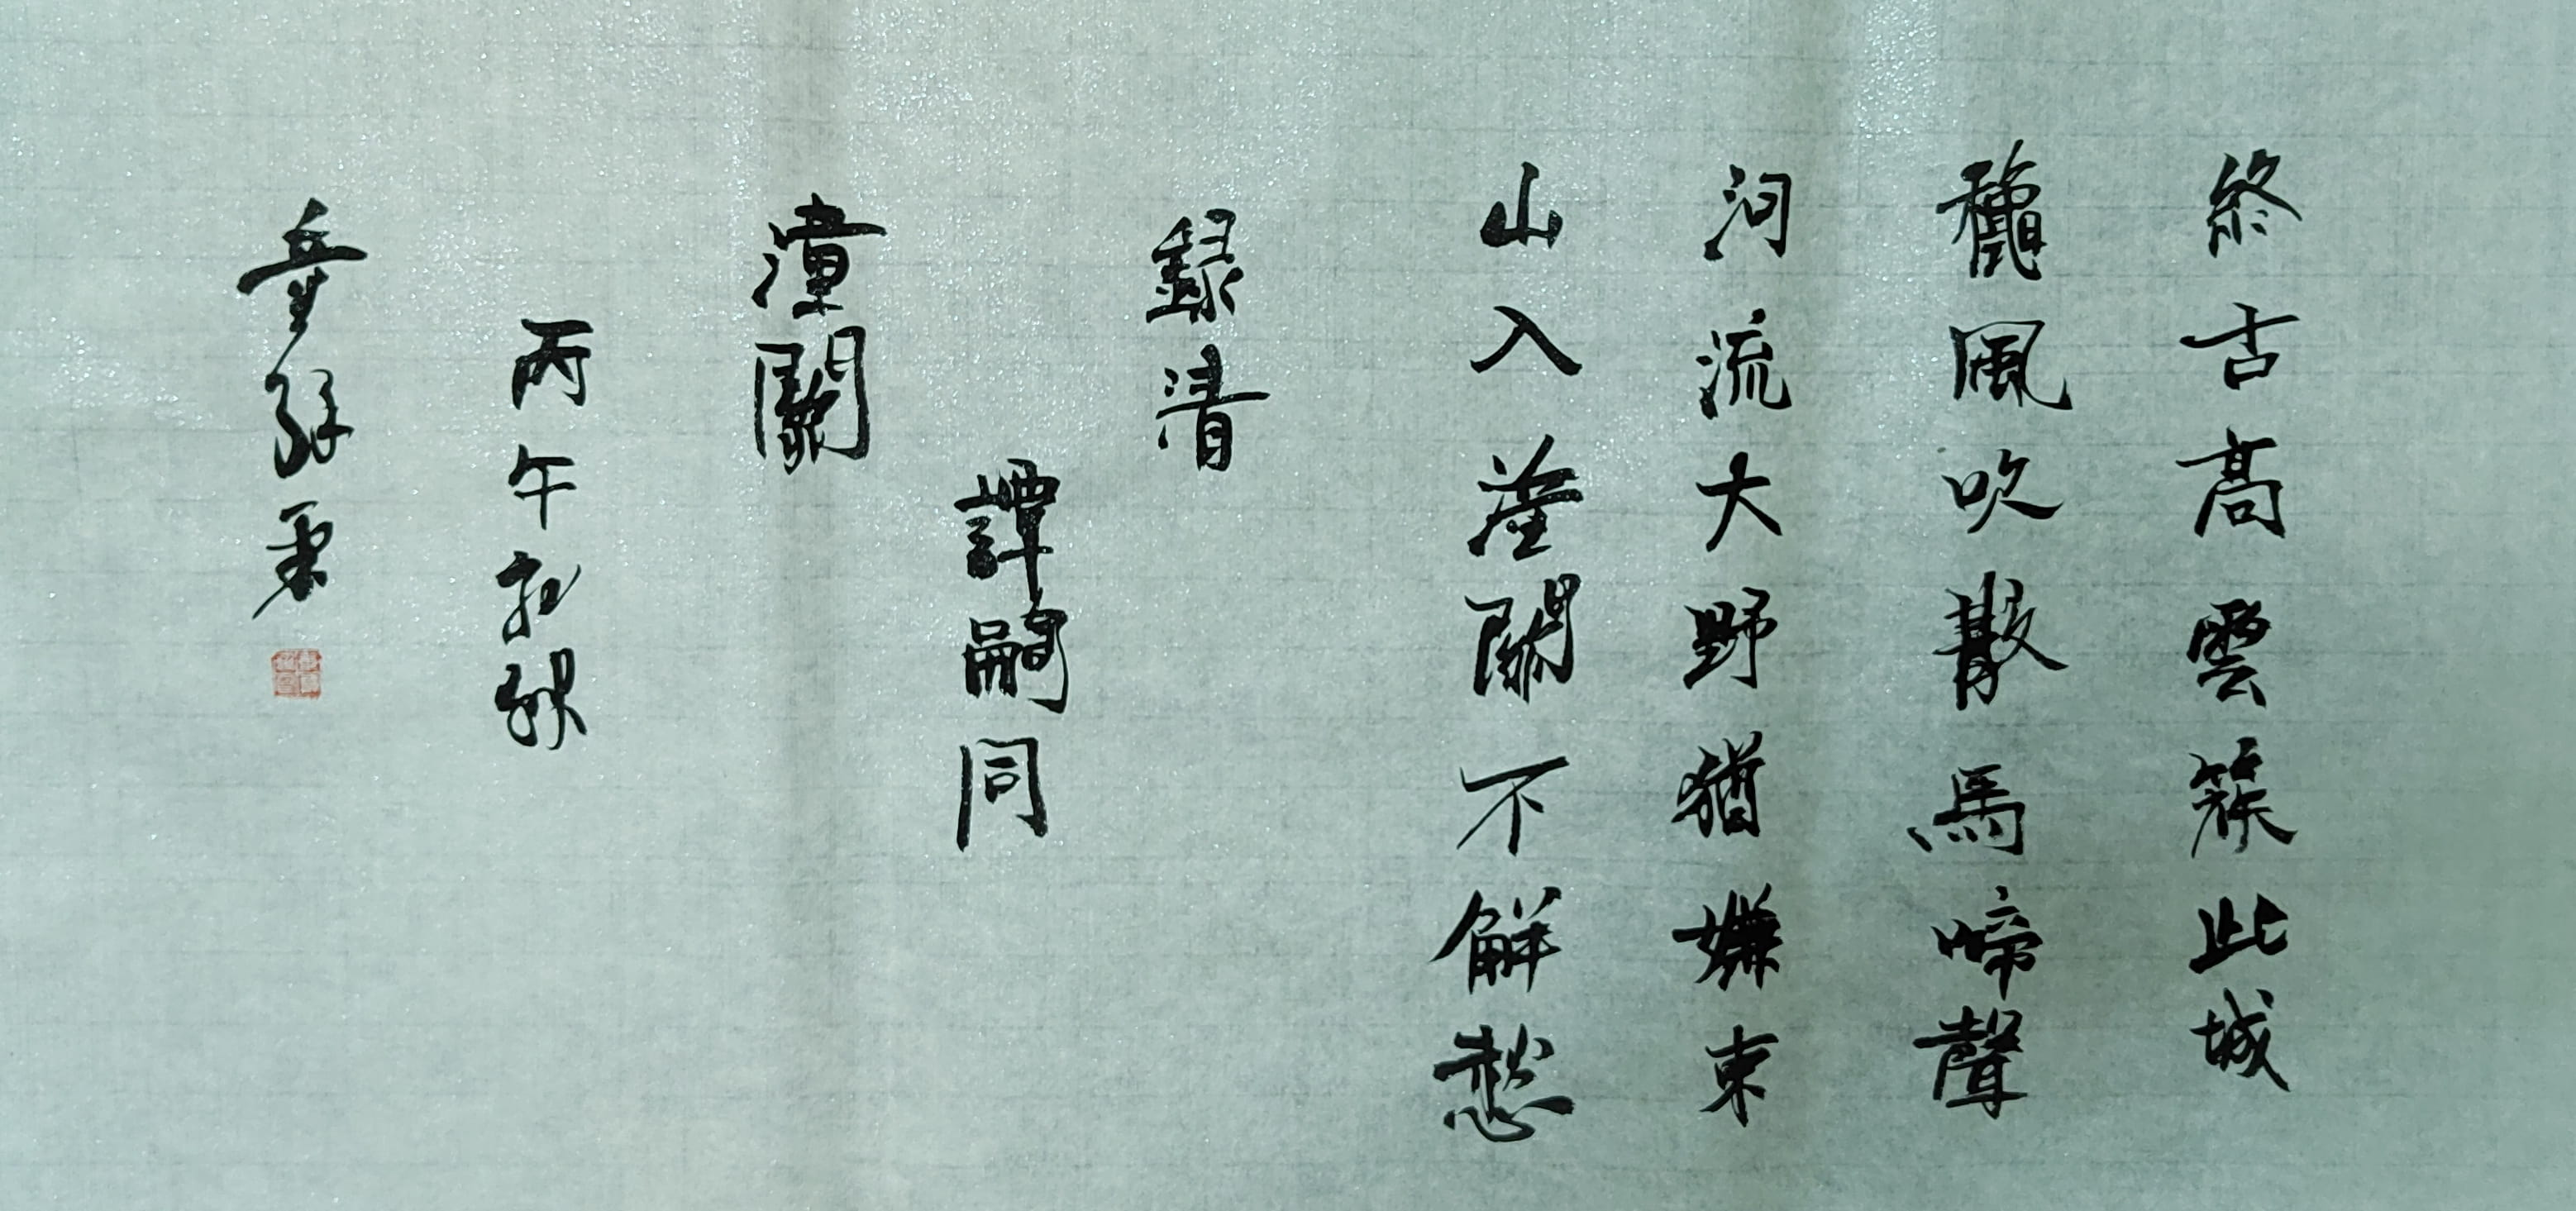 終古高雲簇此城
穐風吹散馬啼聲
河流大野猶嫌束
山入潼關不解愁
録清
譚嗣同
潼關
丙午初秋